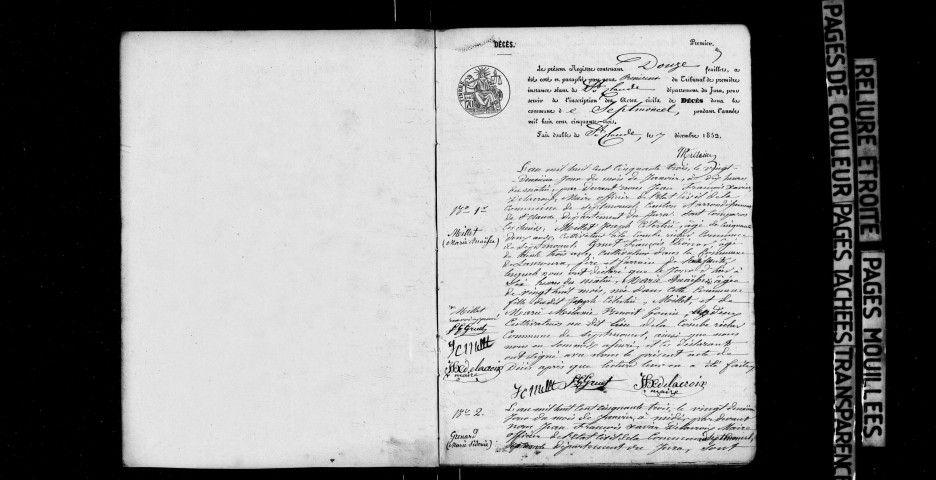 DÉCÈS.
Premier
Le présent Registre contenant Douze feuillets, a
été coté et paraphé par nous Président du Tribunal de première
instance séant de St Claude département du Jura, pour
servir de l'inscription des Actes civils de DÉCÈS dans la
commune d e Septmoncel, pendant l'année
mil huit cent cinquante-trois.
Fait double de St Claude, le 17 décembre 1852.
No 1er
Millet
(Marie Anaïse)
L'an mil huit cent cinquante trois, le vingt
deuxième jour du mois de Janvier, à dix heures
du matin, par devant nous Jean François Xavier
Delacroix, Maire officier de l'état civil de la
Commune de Septmoncel, Canton et arrondissement
de St Claude, Département du Jura, sont comparus
les sieurs, Millet Joseph Célestin, âgé de cinquante
deux ans, Cultivateur à la Combe Commune
de Septmoncel, Gruet François âgé
de trente trois ans, Cultivateur dans la Commune
de Lamoura,
lesquels nous ont déclaré que le jour d'hier à
Six heures du matin, Marie Anaïse, âgée
de vingt huit mois, née dans cette Commune
fille du dit Joseph Célestin, Millet, et de
Marie Mélanie Benoit Gonin,
Cultivateurs au dit lieu de la Combe
Commune de Septmoncel, ainsi que nous
nous en sommes assuré, et les déclarants
ont signé avec nous le présent acte de
Décès après que lecture leur en a été faite,
Millet
Gruet
JC Millet
JFX Delacroix
maire
JC Millet Gruet JFX Delacroix
maire
No 2.
(Marie
L'an mil huit cent cinquante trois, le vingt deuxième
Jour du mois de Janvier, à midi, par devant
nous Jean François Xavier Delacroix Maire
officier de l'état civil de la Commune de Septmoncel,
Département du Jura, sont
RELIURE ETROITE
PAGES MOUILLEES
PAGES DE COULEUR
PAGES TACHEES
TRANSPARENCE